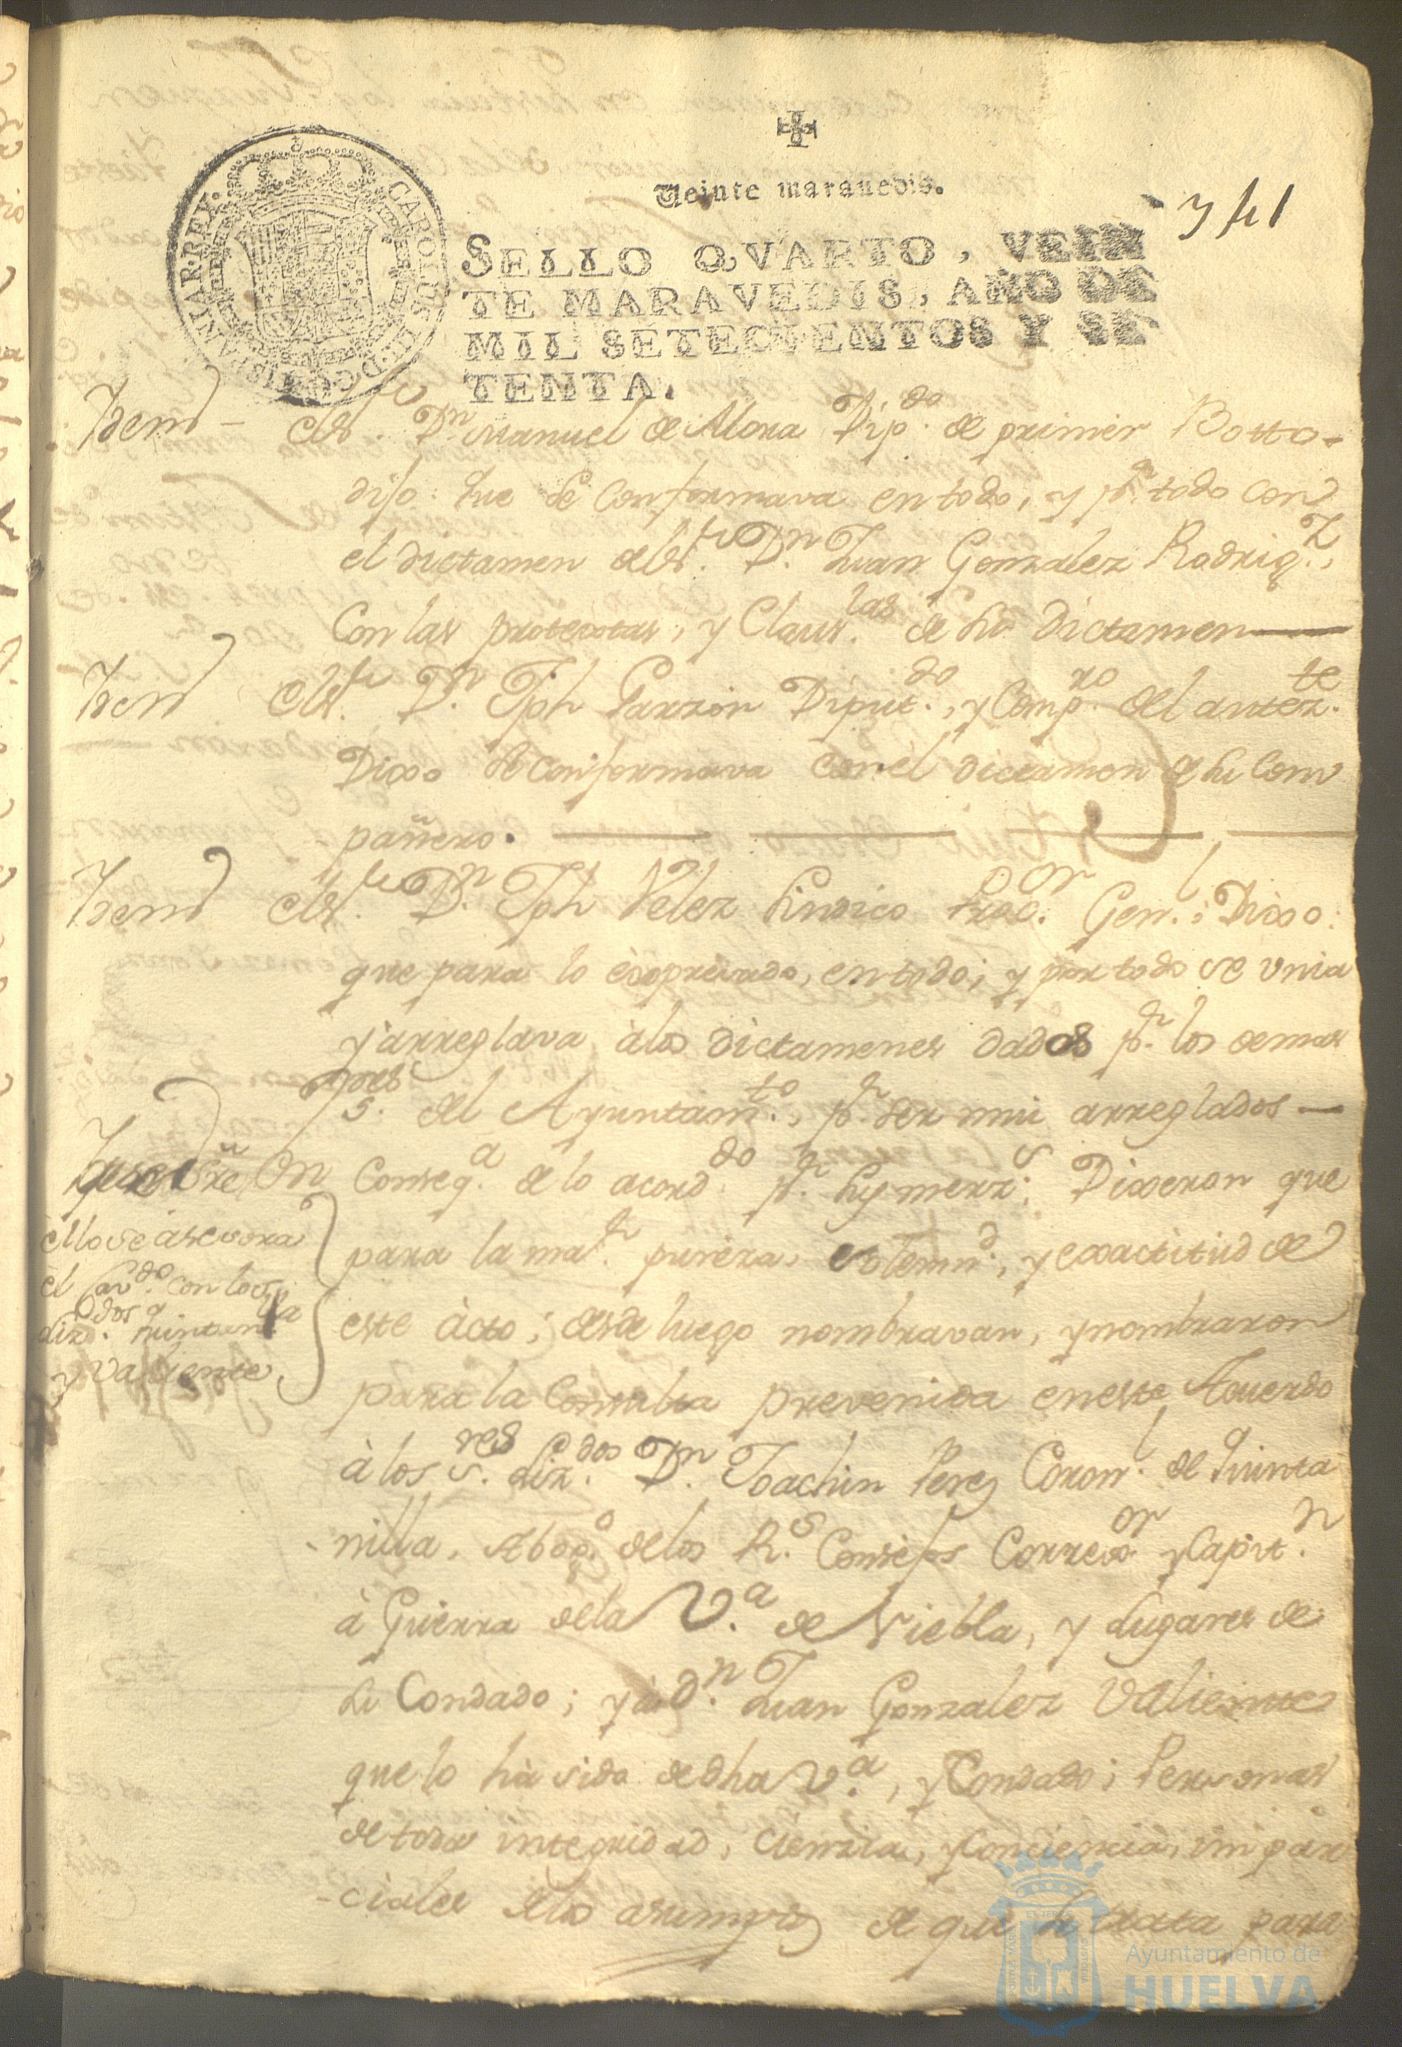 Veinte maravedis.
741
SELLO QVARTO, VEIN
TE MARAVEDIS, AÑO DE
MIL SETECIENTOS Y SE
TENTA.
CAROLUS III D.G. HISPANIAR. REX.
Item - el Sr. Dn. Manuel de Mora Dip.do de primer Votto
dijo: que se conformava en todo, y pr. todo con
el dictamen del Sr. Dn. Juan Gonzalez Rodrig.z,
con las protextas, y Claus.las de su Dictamen
Item el Sr. Dn. Jph Garzon Diput.do, y Comp.ro del antez.te
Dixo se conformava con el dictamen de su Com
pañero.
Item el Sr. Dn. Jph Velez Sindico Proc.or Gen.l; Dixo:
que para lo expresado, en todo, y por todo se unia
y arreglava à los dictamenes dados pr. los demas
S.res del Ayuntam.to, pr. ser mui arreglados
En Conseq.a de lo acord.do pr. sus merz.s; Dixeron que
para la ma.r pureza, solemn.d, y exactitud de
este àcto; desde luego nombravan, y nombraron
para la Consulta prevenida en este Acuerdo
à los S.res Liz.dos Dn. Joachin Perez Coron.l de Quinta
nilla, Abog.o de los R.s Consejos Correx.or y Capit.n
à Guerra de la V.a de Niebla, y Lugares de
su Condado; y à Dn. Juan Gonzalez Valiente
que lo hà sido de dha V.a, y Condado; Personas
de toda integridad, cienzia, y conciencia, impar
ciales de los asumptos de que se trata para
ello se asesora
el Cav.do con los
Liz.dos Quintan.lla
y Valiente
Ayuntamiento de
HUELVA